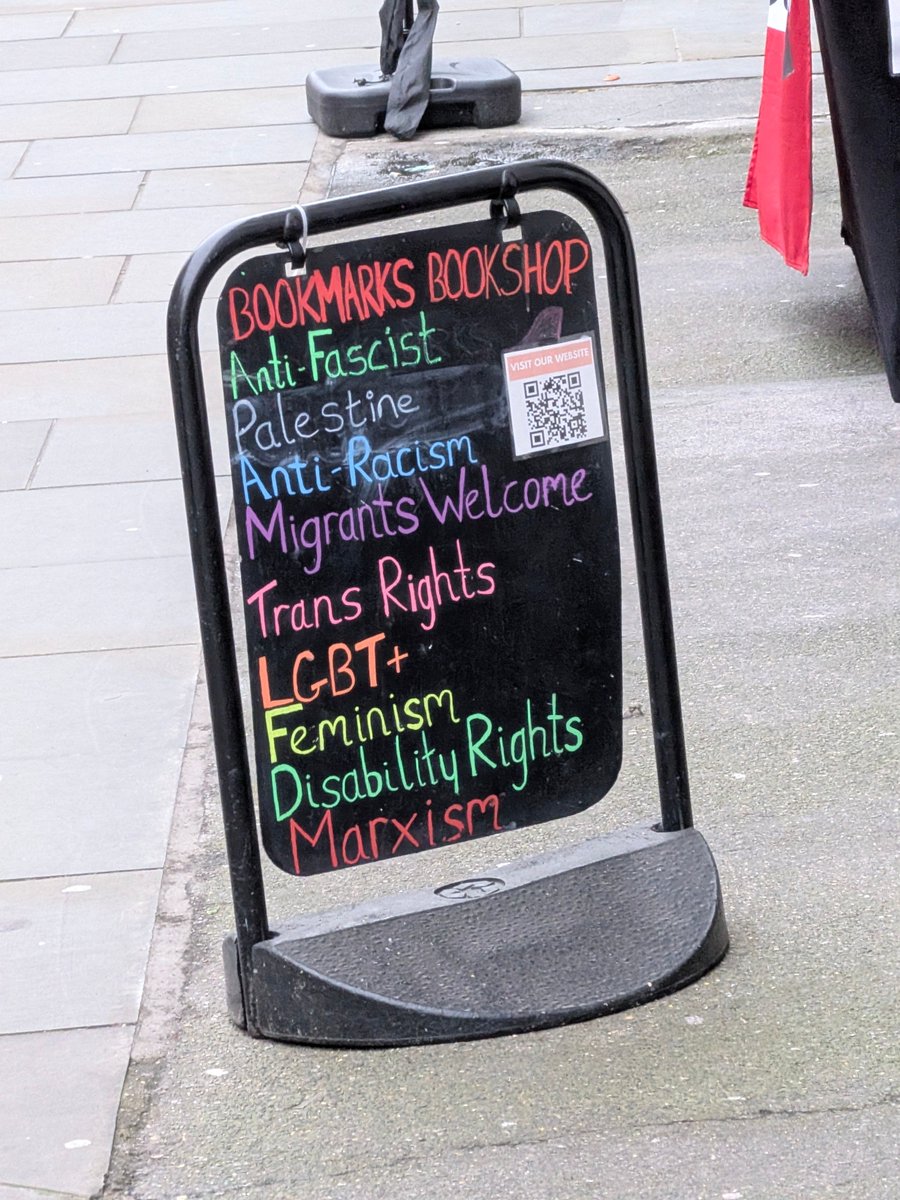 BOOKMARKS BOOKSHOP
Anti-Fascist
VISIT OUR WEBSITE
Palestine
Anti-Racism
Migrants Welcome
Trans Rights
LGBT+
Feminism
Disability Rights
Marxism